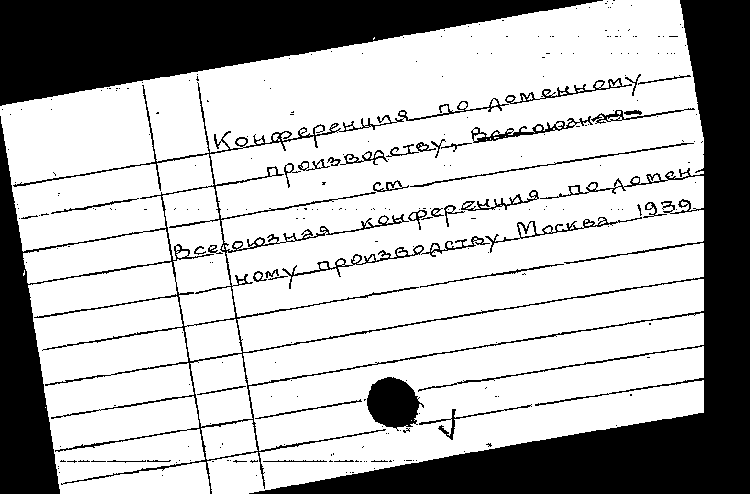 Конференция по доменному
производству, Всесоюзная
см
Всесоюзная конференция по домен-
ному производству. Москва. 1939